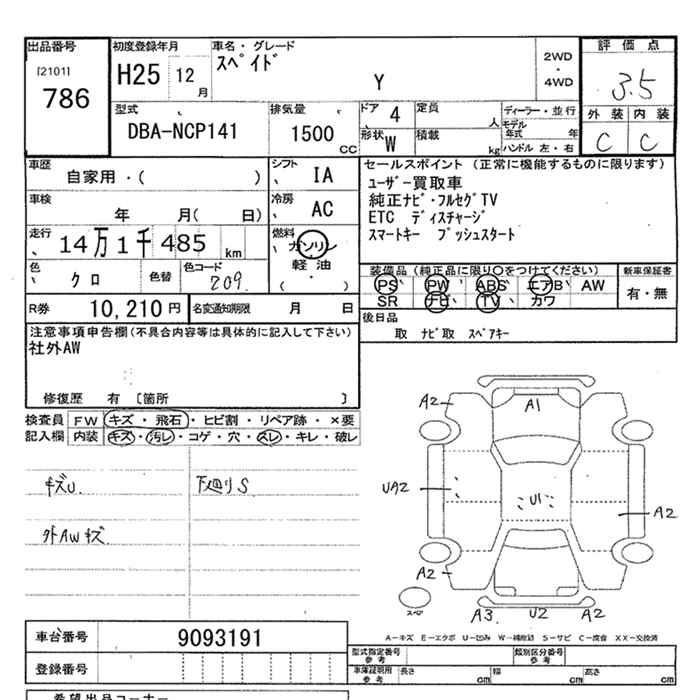 出品番号
[2101]
786
初度登録年月
H25 12 月
車名・グレード
スペイド
Y
2WD
・
4WD
評価点
3.5
外装 内装
C C
型式
DBA-NCP141
排気量
1500 CC
ドア 4
形状 W
定員 人
積載 kg
ディーラー・並行
モデル年式 年
ハンドル 左・右
車歴
自家用・( )
シフト IA
車検
年 月( 日)
冷房 AC
走行 14万1千485 km
燃料
ガソリン
軽油
・( )
色 クロ
色替
色コード 209
R券 10,210 円
名変通知期限 月 日
セールスポイント(正常に機能するものに限ります)
ユーザー買取車
純正ナビ・フルセグTV
ETC ディスチャージ
スマートキー プッシュスタート
装備品(純正品に限り○をつけてください)
新車保証書
PS PW ABS エアB AW
SR ナビ TV カワ
有・無
後日品
取 ナビ取 スペアキー
注意事項申告欄(不具合内容等は具体的に記入して下さい)
社外AW
修復歴 有 [箇所 ]
検査員記入欄
FW キズ・飛石・ヒビ割・リペア跡・×要
内装 キズ・汚レ・コゲ・穴・スレ・キレ・破レ
キズU
下廻りS
外AWキズ
A2
A1
UA2
U1
A2
A2
スペア
A3 U2 A2
A-キズ E-エクボ U-凹み W-補修跡 S-サビ C-腐食 XX-交換済
車台番号 9093191
登録番号
型式指定番号
参考
類別区分番号
参考
車庫証明用
参考
長さ cm
幅 cm
高さ cm
希望出品コーナー